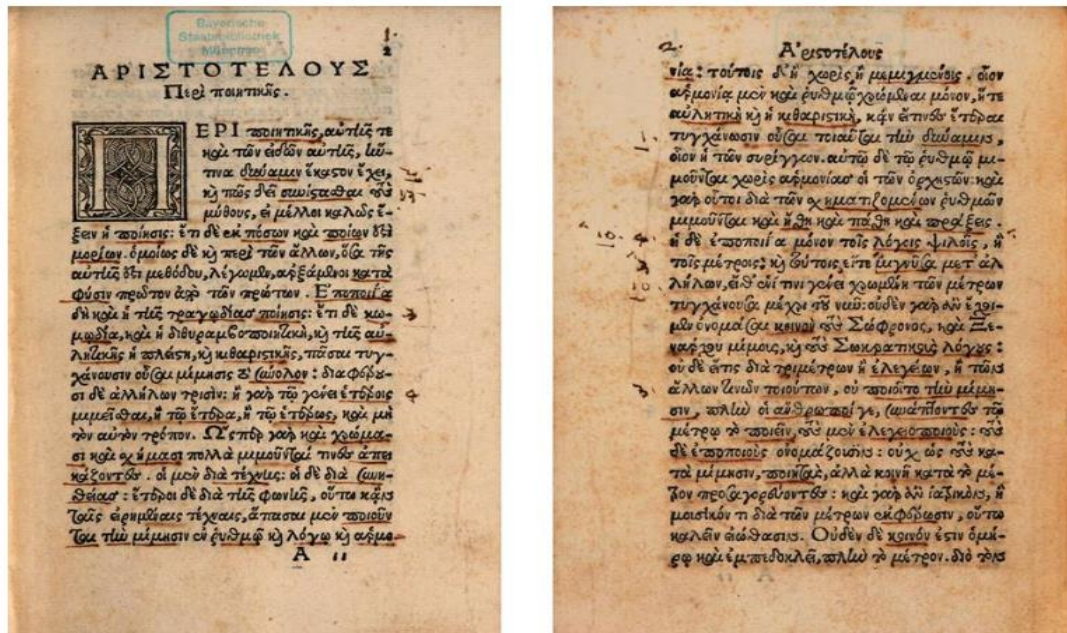 Bayerische
Staatsbibliothek
München
1.
2
ΑΡΙΣΤΟΤΕΛΟΥΣ
Περὶ ποιητικῆς.
ΠΕΡΙ ποιητικῆς, αὐτῆς τε
καὶ τῶν εἰδῶν αὐτῆς, ἥν
τινα δύναμιν ἕκαστον ἔχει,
κὶ πῶς δεῖ συνίστασθαι τοὺς
μύθους, εἰ μέλλοι καλῶς ἕ-
ξειν ἡ ποίησις: ἔτι δὲ ἐκ πόσων καὶ ποίων ἐστὶ
μορίων. ὁμοίως δὲ κὶ περὶ τῶν ἄλλων, ὅσα τῆς
αὐτῆς ἐστι μεθόδου, λέγωμεν, ἀρξάμενοι κατὰ
φύσιν πρῶτον ἀπὸ τῶν πρώτων. Ἐποποιΐα
δὴ καὶ ἡ τῆς τραγῳδίας ποίησις: ἔτι δὲ κω-
μῳδία, καὶ ἡ διθυραμβοποιητικὴ, κὶ τῆς αὐ-
λητικῆς ἡ πλείστη, κὶ κιθαριστικῆς, πᾶσαι τυγ-
χάνουσιν οὖσαι μίμησις τὸ σύνολον: διαφέρου-
σι δὲ ἀλλήλων τρισίν: ἢ γὰρ τῷ γένει ἑτέροις
μιμεῖσθαι, ἢ τῷ ἕτερα, ἢ τῷ ἑτέρως, καὶ μὴ
τὸν αὐτὸν τρόπον. Ὥσπερ γὰρ καὶ χρώμα-
σι καὶ σχήμασι πολλὰ μιμοῦνταί τινες ἀπει
κάζοντες. οἱ μὲν διὰ τέχνης: οἱ δὲ διὰ συνη-
θείας: ἕτεροι δὲ διὰ τῆς φωνῆς, οὕτω κἀν
ταῖς εἰρημέναις τέχναις, ἅπασαι μὲν ποιοῦν
ται τὴν μίμησιν ἐν ῥυθμῷ κὶ λόγῳ κὶ ἁρμο-
A ii
2. Ἀριστοτέλους
νίᾳ: τούτοις δ' ἢ χωρὶς, ἢ μεμιγμένοις. οἷον
ἁρμονίᾳ μὲν καὶ ῥυθμῷ χρώμεναι μόνον, ἥ τε
αὐλητικὴ κὶ ἡ κιθαριστικὴ, κἂν εἴ τινες ἕτεραι
τυγχάνωσιν οὖσαι τοιαῦται τὴν δύναμιν,
οἷον ἡ τῶν συρίγγων. αὐτῷ δὲ τῷ ῥυθμῷ μι-
μοῦνται χωρὶς ἁρμονίας οἱ τῶν ὀρχηστῶν: καὶ
γὰρ οὗτοι διὰ τῶν σχηματιζομένων ῥυθμῶν
μιμοῦνται καὶ ἤθη καὶ πάθη καὶ πράξεις.
ἡ δὲ ἐποποιΐα μόνον τοῖς λόγοις ψιλοῖς, ἢ
τοῖς μέτροις: κὶ τούτοις εἴτε μιγνῦσα μετ' ἀλ
λήλων, εἴθ' ἑνί τινι γένει χρωμένη τῶν μέτρων
τυγχάνουσα μέχρι τοῦ νῦν: οὐδὲν γὰρ ἂν ἔχοι-
μεν ὀνομάσαι κοινὸν τοὺς Σώφρονος, καὶ Ξε-
νάρχου μίμους, κὶ τοὺς Σωκρατικοὺς λόγους:
οὐ δὲ εἴ τις διὰ τριμέτρων ἢ ἐλεγείων, ἢ τῶν
ἄλλων τινῶν τοιούτων, οὐ ποιοῖτο τὴν μίμη-
σιν, πλὴν οἱ ἄνθρωποί γε, συνάπτοντες τῷ
μέτρῳ τὸ ποιεῖν, τοὺς μὲν ἐλεγειοποιοὺς: τοὺς
δὲ ἐποποιοὺς ὀνομάζουσιν: οὐχ ὡς τοὺς κα-
τὰ μίμησιν, ποιητὰς, ἀλλὰ κοινῇ κατὰ τὸ μέ-
τρον προσαγορεύοντες: καὶ γὰρ ἂν ἰατρικὸν, ἢ
μουσικόν τι διὰ τῶν μέτρων ἐκφέρωσιν, οὕτω
καλεῖν εἰώθασιν. Οὐδὲν δὲ κοινόν ἐστιν ὁμή-
ρῳ καὶ ἐμπεδοκλεῖ, πλὴν τὸ μέτρον. διὸ τὸν